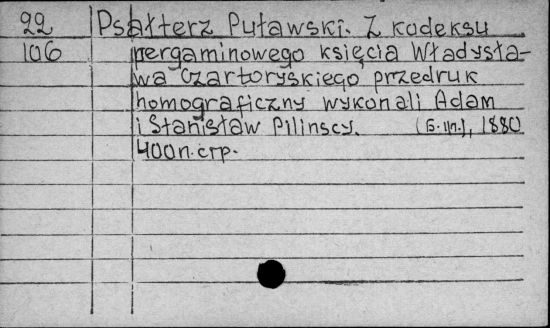 22 Psałterz Puławski. Z kodeksu
106 pergaminowego księcia Władysła-
wa Czartoryskiego przedruk
homograficzny wykonali Adam
i Stanisław Pilinscy. (Б.м.), 1880
400 п. стр.